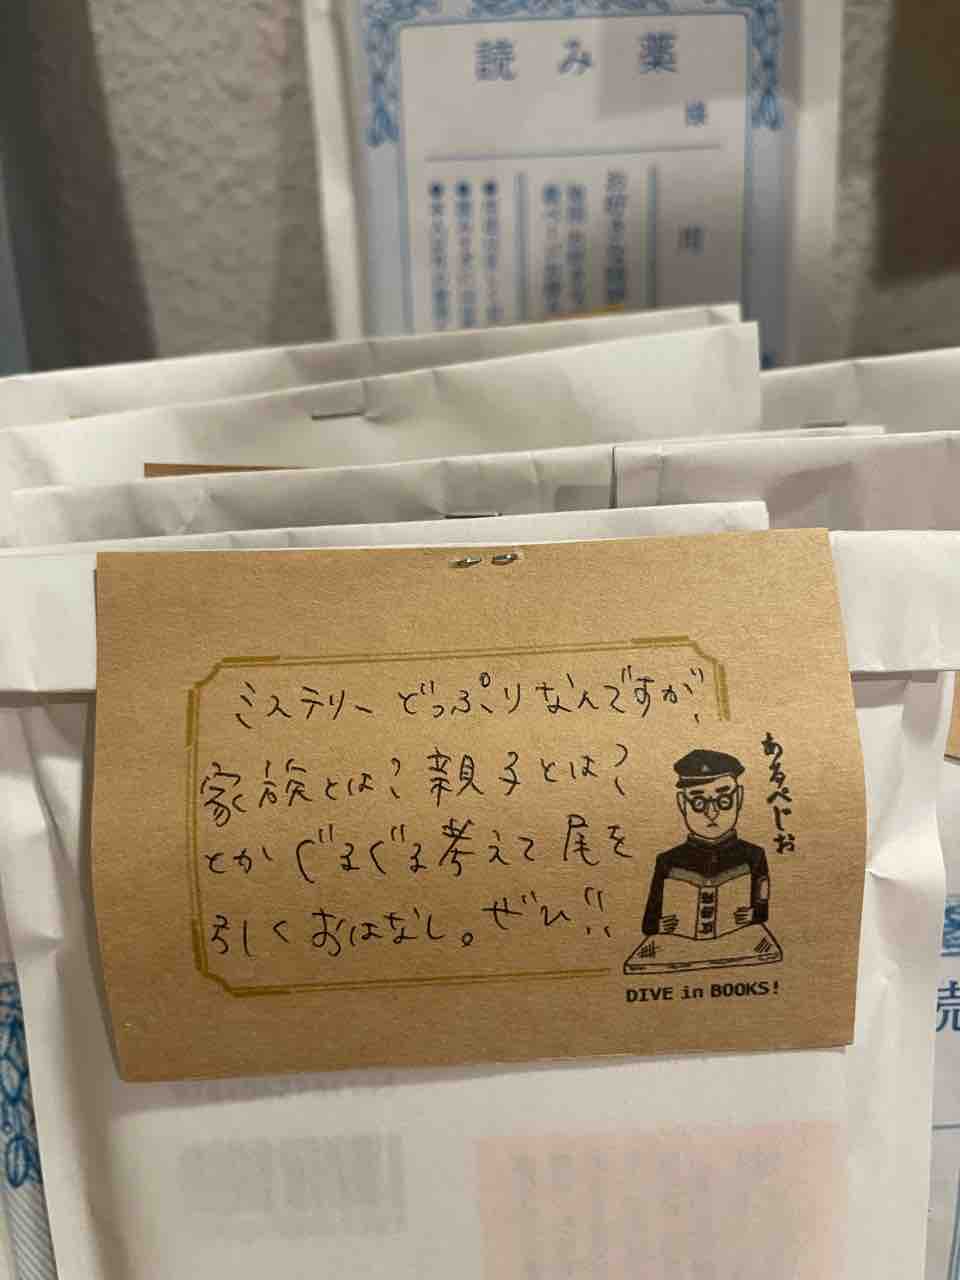 読み薬
様
ミステリーどっぷりなんですが、
家族とは？親子とは？
とかぐるぐる考えて尾を
引くおはなし。ぜひ!!
あるぺじお
DIVE in BOOKS!